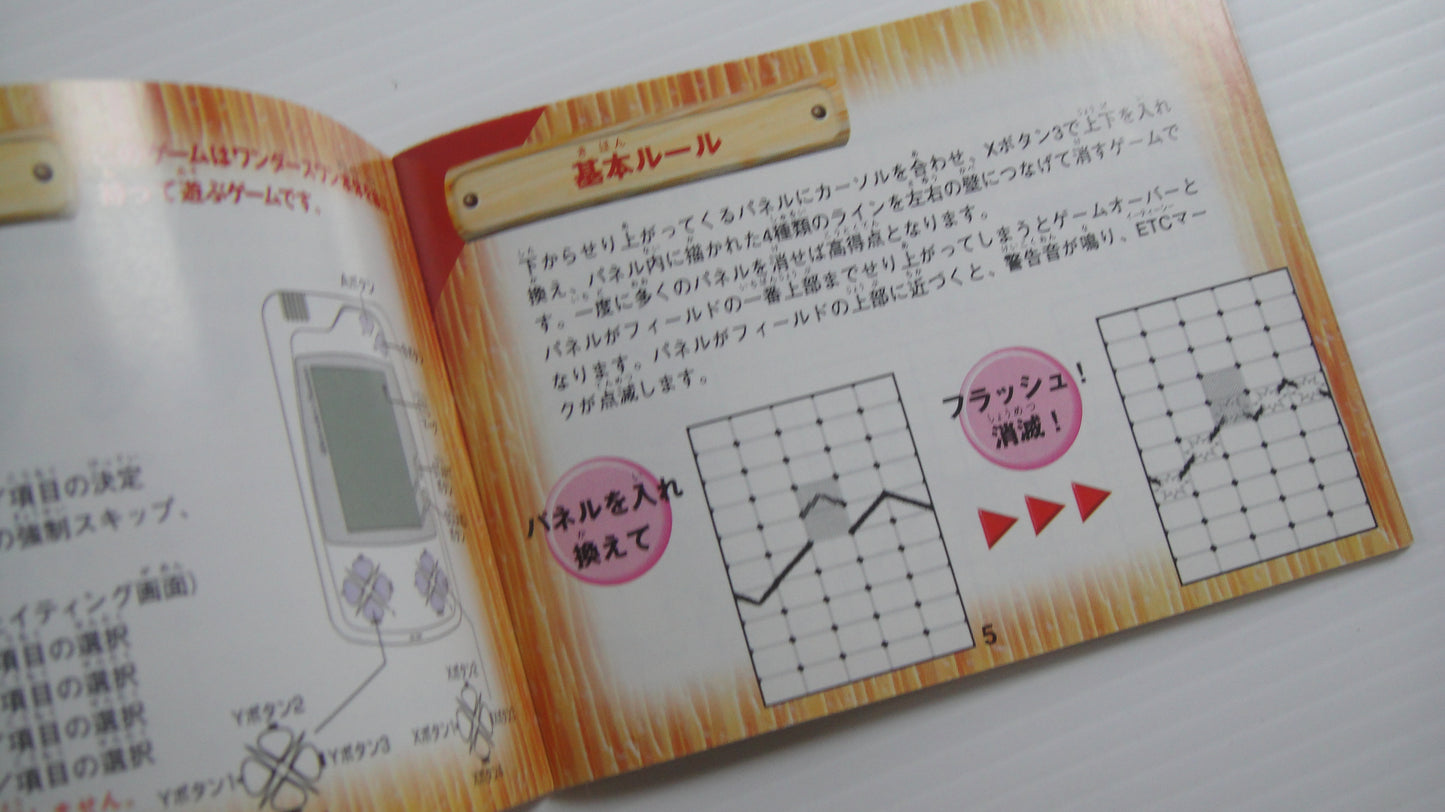 ゲームはワンダースワン
って遊ぶゲームです。
Aボタン
項目の決定
の強制スキップ、
イティング画面)
項目の選択
項目の選択
項目の選択
項目の選択
しません。
Yボタン2
Yボタン3
Yボタン1
Xボタン2
Xボタン1
基本ルール
下からせり上がってくるパネルにカーソルを合わせ、Xボタン3で上下を入れ
換え、パネル内に描かれた4種類のラインを左右の壁につなげて消すゲームで
す。一度に多くのパネルを消せば高得点となります。
パネルがフィールドの一番上部までせり上がってしまうとゲームオーバーと
なります。パネルがフィールドの上部に近づくと、警告音が鳴り、ETCマー
クが点滅します。
パネルを入れ
換えて
フラッシュ!
消滅!
5